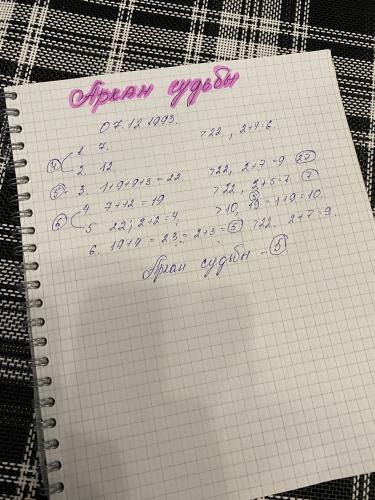 Аркан судьбы
07.12.1993.
1. 7.
>22, 2+4=6.
④ 2. 12
>22, 2+7=9 ㉗
⑤ 3. 1+9+9+3=22.
>22, 2+5=7 ⑦
⑥ 4. 7+12=19
>10, 19=1+9=10.
5. 22; 2+2=4.
>22. 2+7=9.
6. 19+4=23=2+3=⑤
Аркан судьбы - ⑤